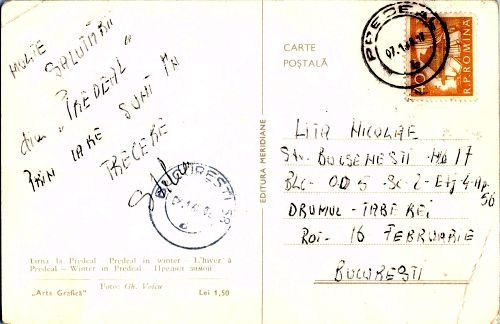 MULTE
SALUTĂRI
din "PREDEAL"
PRIN CARE SUNT IN
TRECERE
BUCUREȘTI
Iarna la Predeal Predeal in winter – L'hiver à
Predeal – Winter in Predeal Предял зимой
"Arta Grafică" Foto: Gh. Voicu Lei 1,50
EDITURA MERIDIANE
CARTE
POȘTALĂ
PREDEAL
R.P.ROMINA
LITA NICOLAE
Str. No 17
BLC- OD 5 - SC-2- Etj 4 Ap.
56
DRUMUL-TABEREI
16 FEBRUARIE
BUCUREȘTI